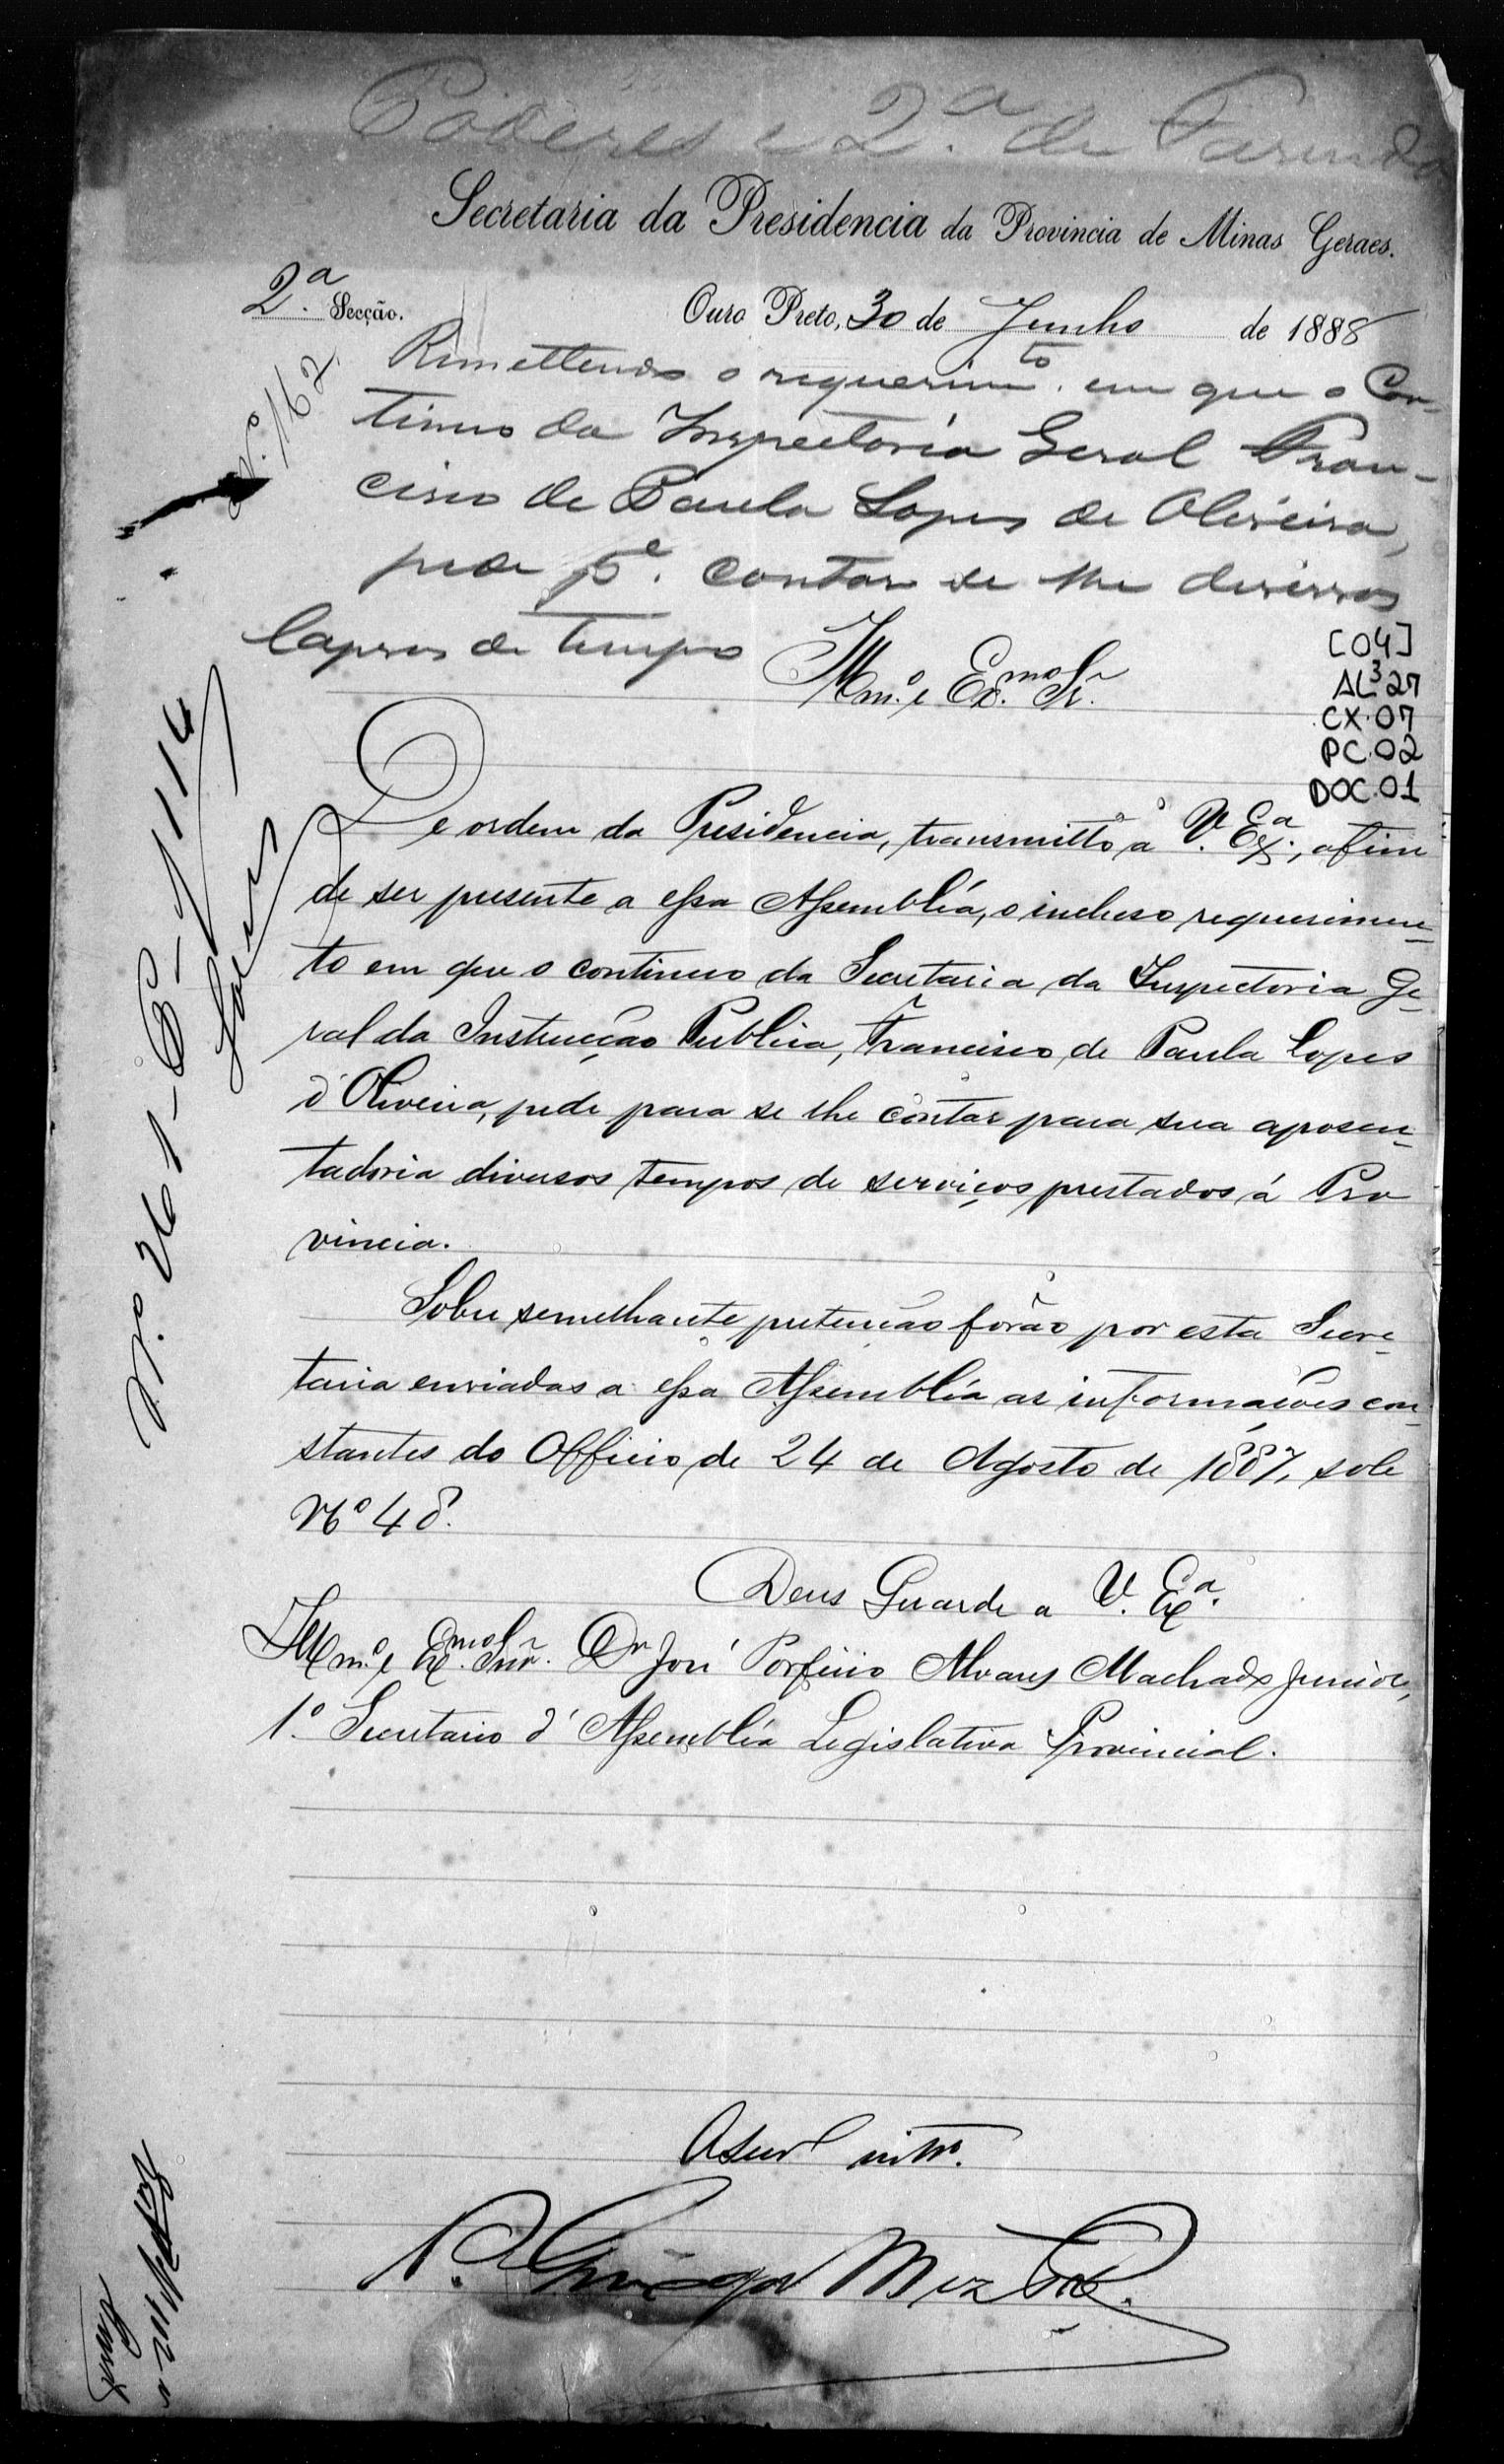 Poderes e 2.ª de Fazenda
Secretaria da Presidencia da Provincia de Minas Geraes.
2.ª Secção.
Ouro Preto, 30 de Junho de 1888
N.º 162.
Remettendo o requerim.to em que o Con-
tinuo da Inspectoria Geral Fran-
cisco de Paula Lopes de Oliveira,
pede p.ª contar se lhe diversos
lapsos de tempo
Illm.º e Ex.mo Sr.
[04]
AL³27
CX.07
PC.02
DOC.01
De ordem da Presidencia, transmitto a V. Ex.ª, afim
de ser presente a essa Assembléa, o incluso requerimen-
to em que o continuo da Secretaria da Inspectoria Ge-
ral da Instrucção Publica, Francisco de Paula Lopes
d'Oliveira, pede para se lhe contar para sua aposen-
tadoria diversos tempos de serviços prestados á Pro
vincia.
Sobre semelhante pretenção forão por esta Secre-
taria enviadas a essa Assembléa as informações con-
stantes do Officio de 24 de Agosto de 1887, sob
Nº 48.
Deus Guarde a V. Ex.ª
Illm.º e Ex.mo Snr. Dr José Porfirio Alvares Machado Junior,
1.º Secretario d'Assembléa Legislativa Provincial.
N.º 261
O Secr.º int.º